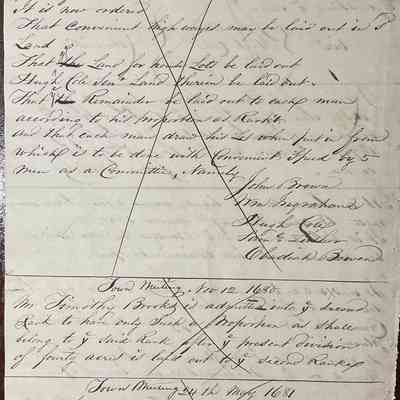 It is now ordered
That Convenient high ways may be laid out in sd
Land
That ye Land for house Lotts be laid out
Hugh Cole Senr Land therein be laid out.
That ye Remainder be laid out to each man
according to his Proportion as Rankt
And that each man draw his Lot when put in form
which is to be done with Convenient Speed by 5
men as a Committee, Namely
John Brown
Wm Ingraham
Hugh Cole
Obadiah Bowen
Town Meeting Nov 12 1680.
Mr Timothy Brooks is admitted into ye Second
Rank to have only Such a Proportion as shall
belong to ye Said Rank after ye present division
of fourty acres is layd out to ye second Rank
Town Meeting 24th May 1681